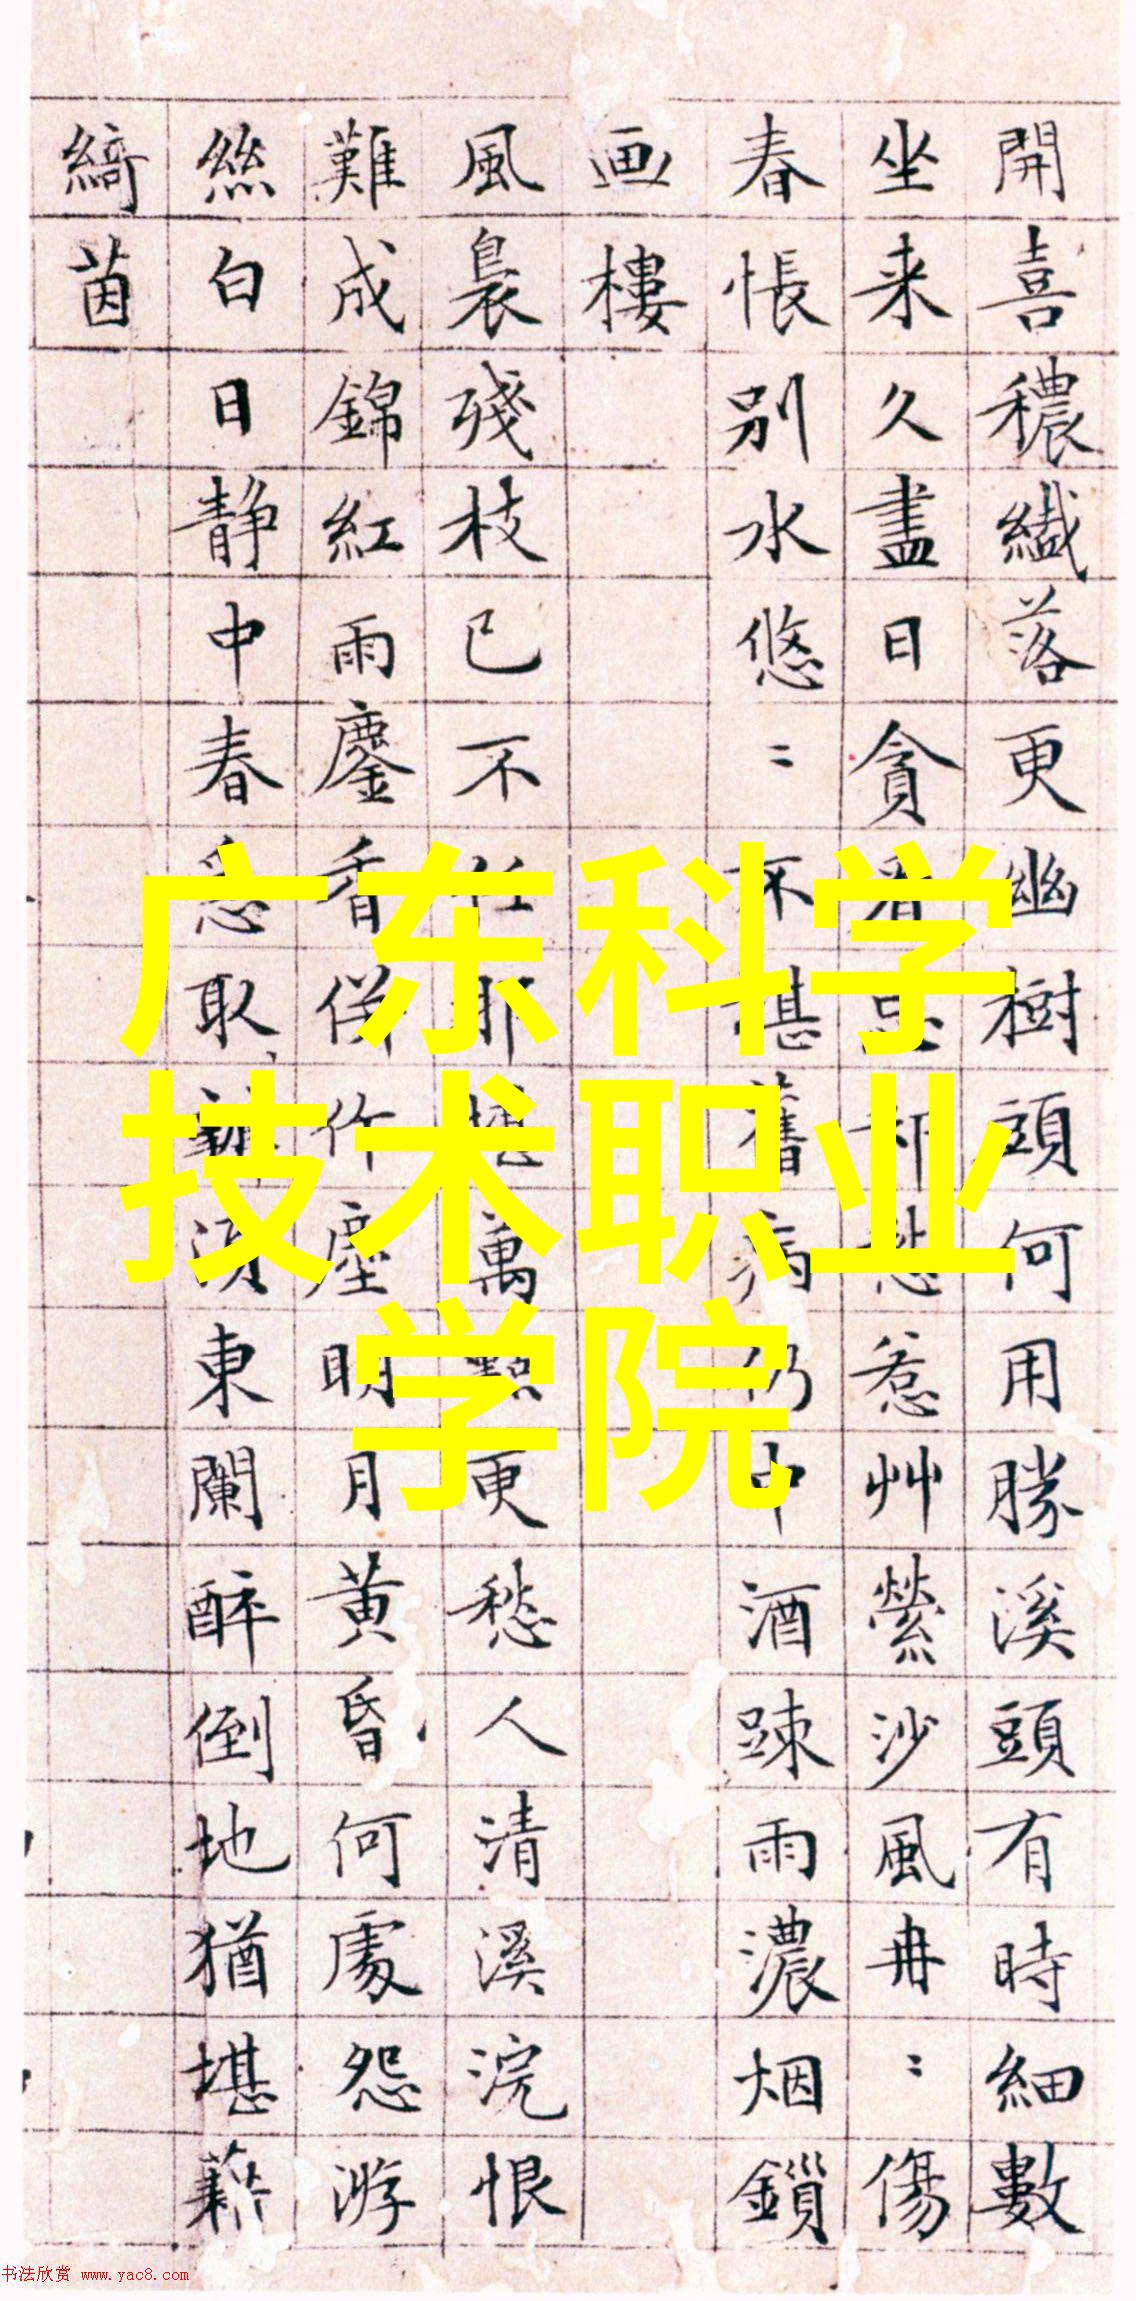 開喜穠纖落更幽樹頭何用勝溪頭有時細數
坐来久盡日貪看却愁惹艸縈沙風冉〻傷
春悵別水悠〻不堪舊病仍中酒踈雨濃烟鎖
画樓
風裊殘枝已不任那堪萬點更愁人清溪浣恨
難成錦紅雨鏖香併作塵明月黄昏何處怨游
絲白日静中春急取須東闌醉倒地猶堪藉
綺茵
广东科学
技术职业
学院
书法欣赏 www.yac8.com